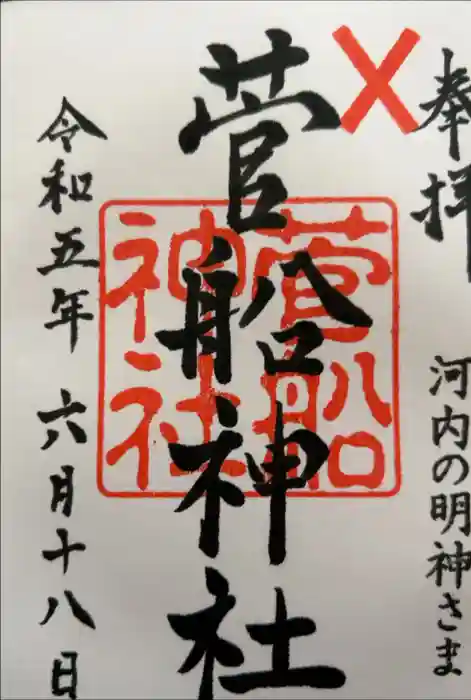 奉拝
河内の明神さま
菅船神社
菅船
神社
令和五年 六月十八日